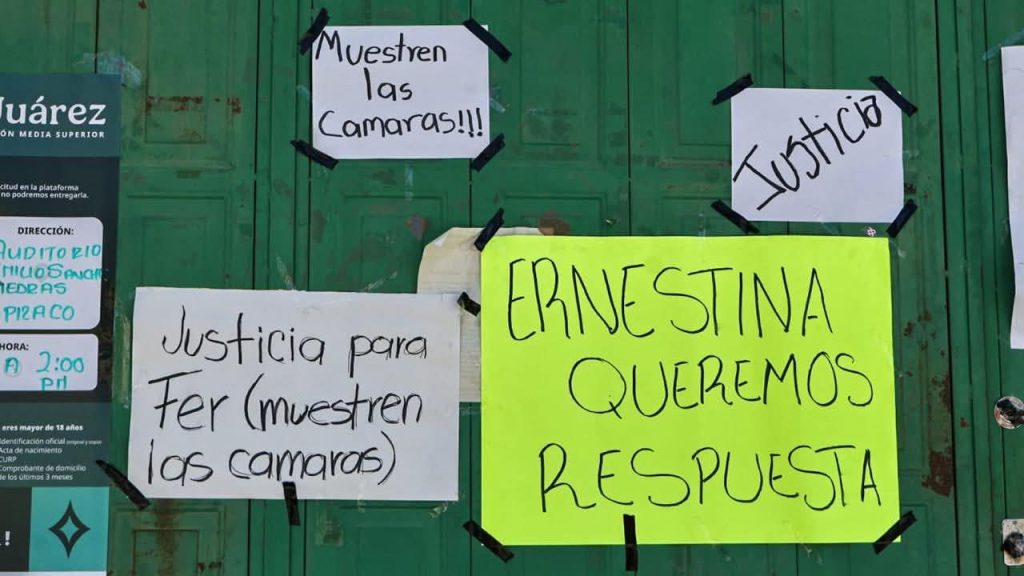 Juárez
ÓN MEDIA SUPERIOR
icitud en la plataforma
no podremos entregarla.
DIRECCIÓN:
AUDITORIO
PIZACO
HORA:
A 2:00
PM
eres mayor de 18 años
Identificación oficial (original y copia)
Acta de nacimiento
CURP
Comprobante de domicilio
de los últimos 3 meses
Muestren
las
Camaras!!!
Justicia
Justicia para
Fer (muestren
las camaras)
ERNESTINA
QUEREMOS
RESPUESTA